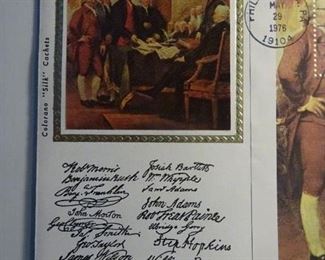 Colorano "Silk" Cachets
PHIL PA
MAY
29
1976
1910A
Robt Morris
Benjamin Rush
Benj. Franklin
John Morton
Geo Clymer
Jas. Smith
Geo Taylor
James Wilson
Josiah Bartlett
Wm Whipple
Saml Adams
John Adams
Robt Treat Paine
Elbridge Gerry
Step Hopkins